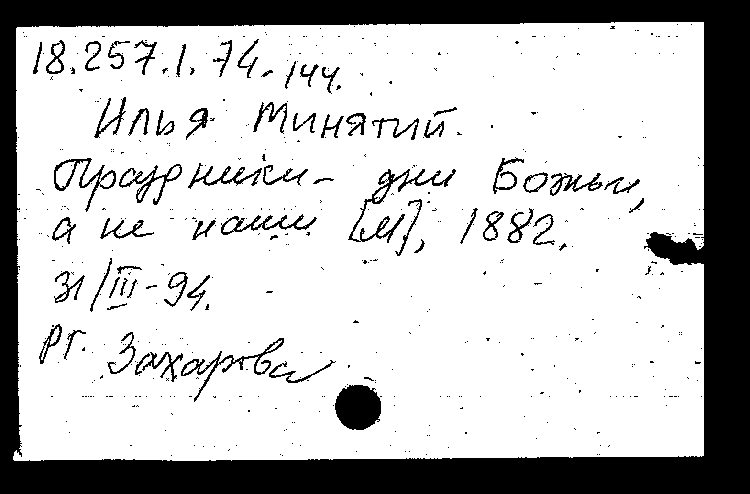 18.257.1.74.144.
Илья Минятий.
Праздники - дни Божьи,
а не наши [М], 1882.
31/III-94.
РГ. Захарова